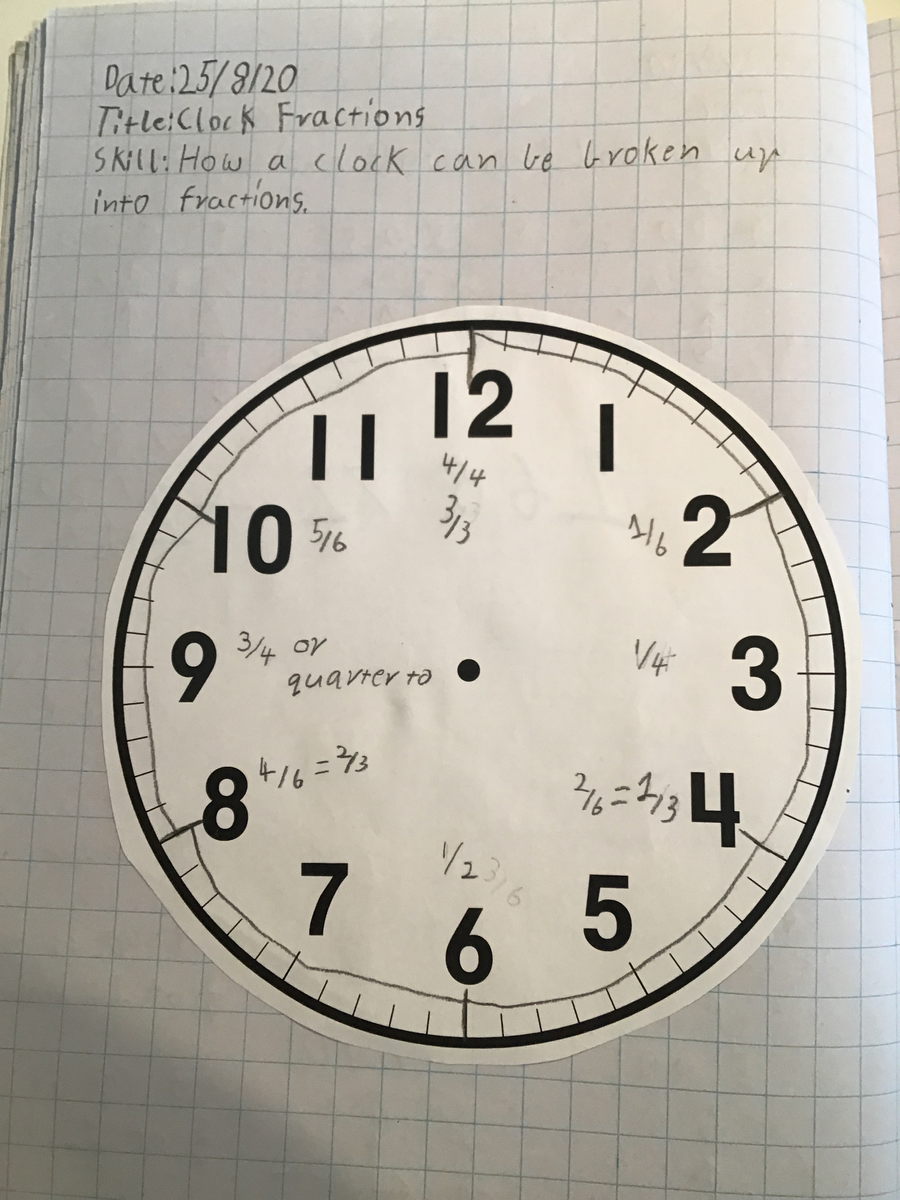 Date:25/8/20
Title:Clock Fractions
Skill: How a clock can be broken up
into fractions.
12
11
1
4/4
10
5/6
3/3
1/6
2
9
3/4 or
quarter to
1/4
3
8
4/6 = 2/3
2/6 = 1/3
4
7
1/2
3/6
5
6